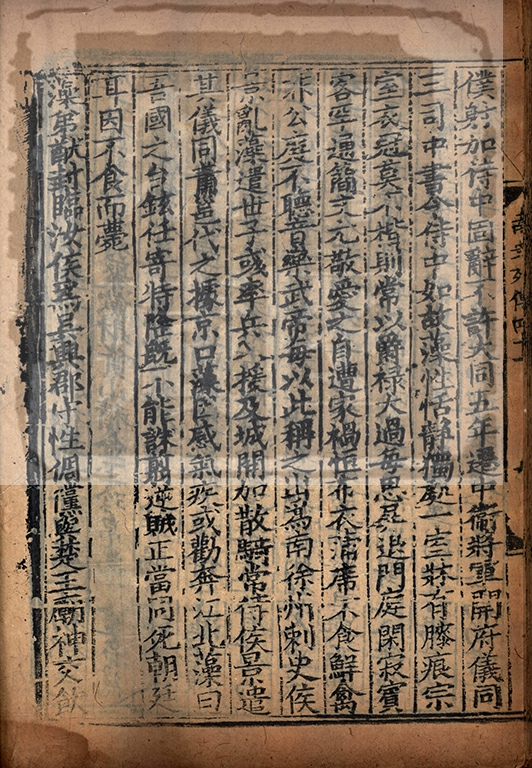 僕射加侍中固辭不許大同五年遷中衛將軍開府儀同
三司中書令侍中如故藻性恬靜獨處一室牀有膝痕宗
室衣冠莫不楷則常以爵禄大過每思屏退門庭閑寂賓
客罕通簡文尤敬愛之自遭家禍恒布衣蒲席不食鮮禽
非公庭不聽音樂武帝每以此稱之出爲南徐州刺史侯
景亂藻遣世子彧率兵入援及城開加散騎常侍侯景遣
其儀同蕭邕代之據京口藻因感氣疾或勸奔江北藻曰
吾國之台鉉任寄特隆既不能誅翦逆賊正當同死朝廷
耳因不食而薨
藻弟猷封臨汝侯爲吳興郡守性倜儻與楚王廟神交飲